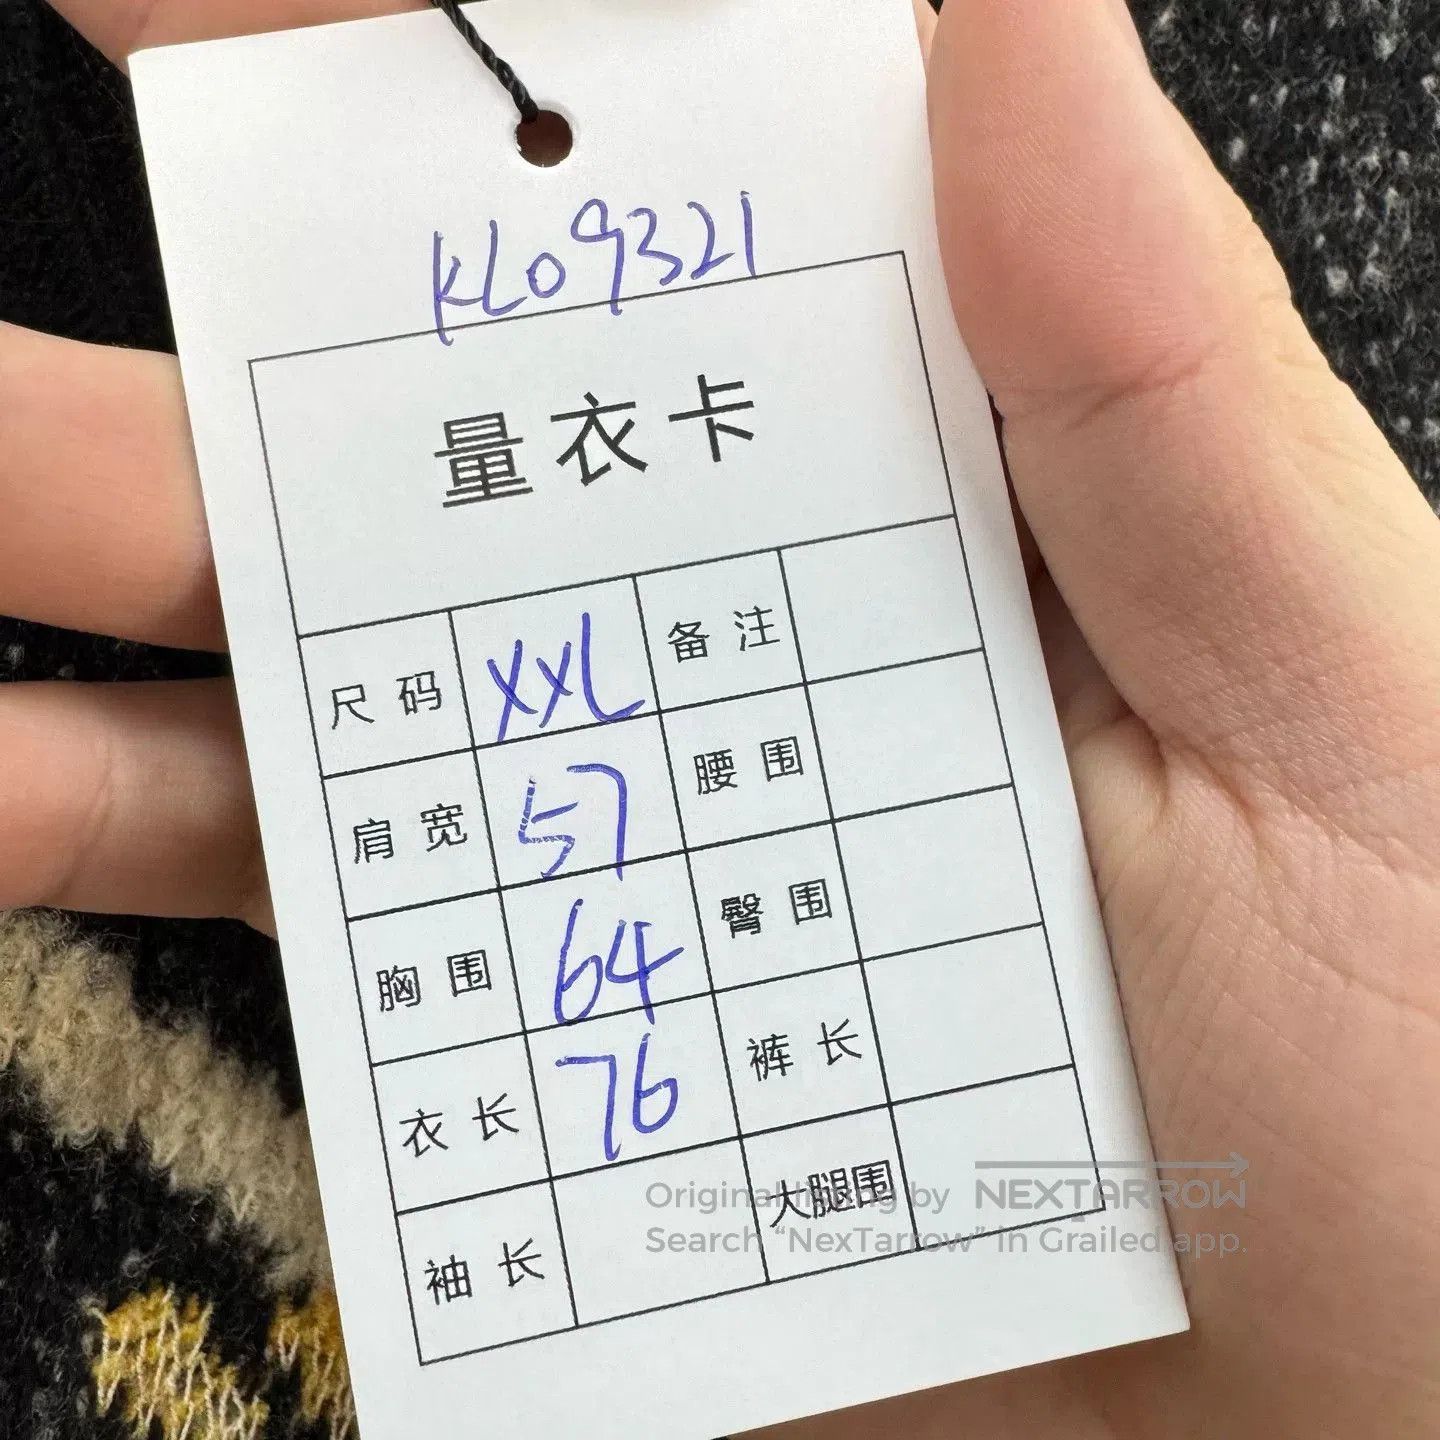 KL09321
量衣卡
尺码 XXL 备注
肩宽 57 腰围
胸围 64 臀围
衣长 76 裤长
袖长 大腿围
Original listing by NEXTARROW
Search “NexTarrow” in Grailed app.